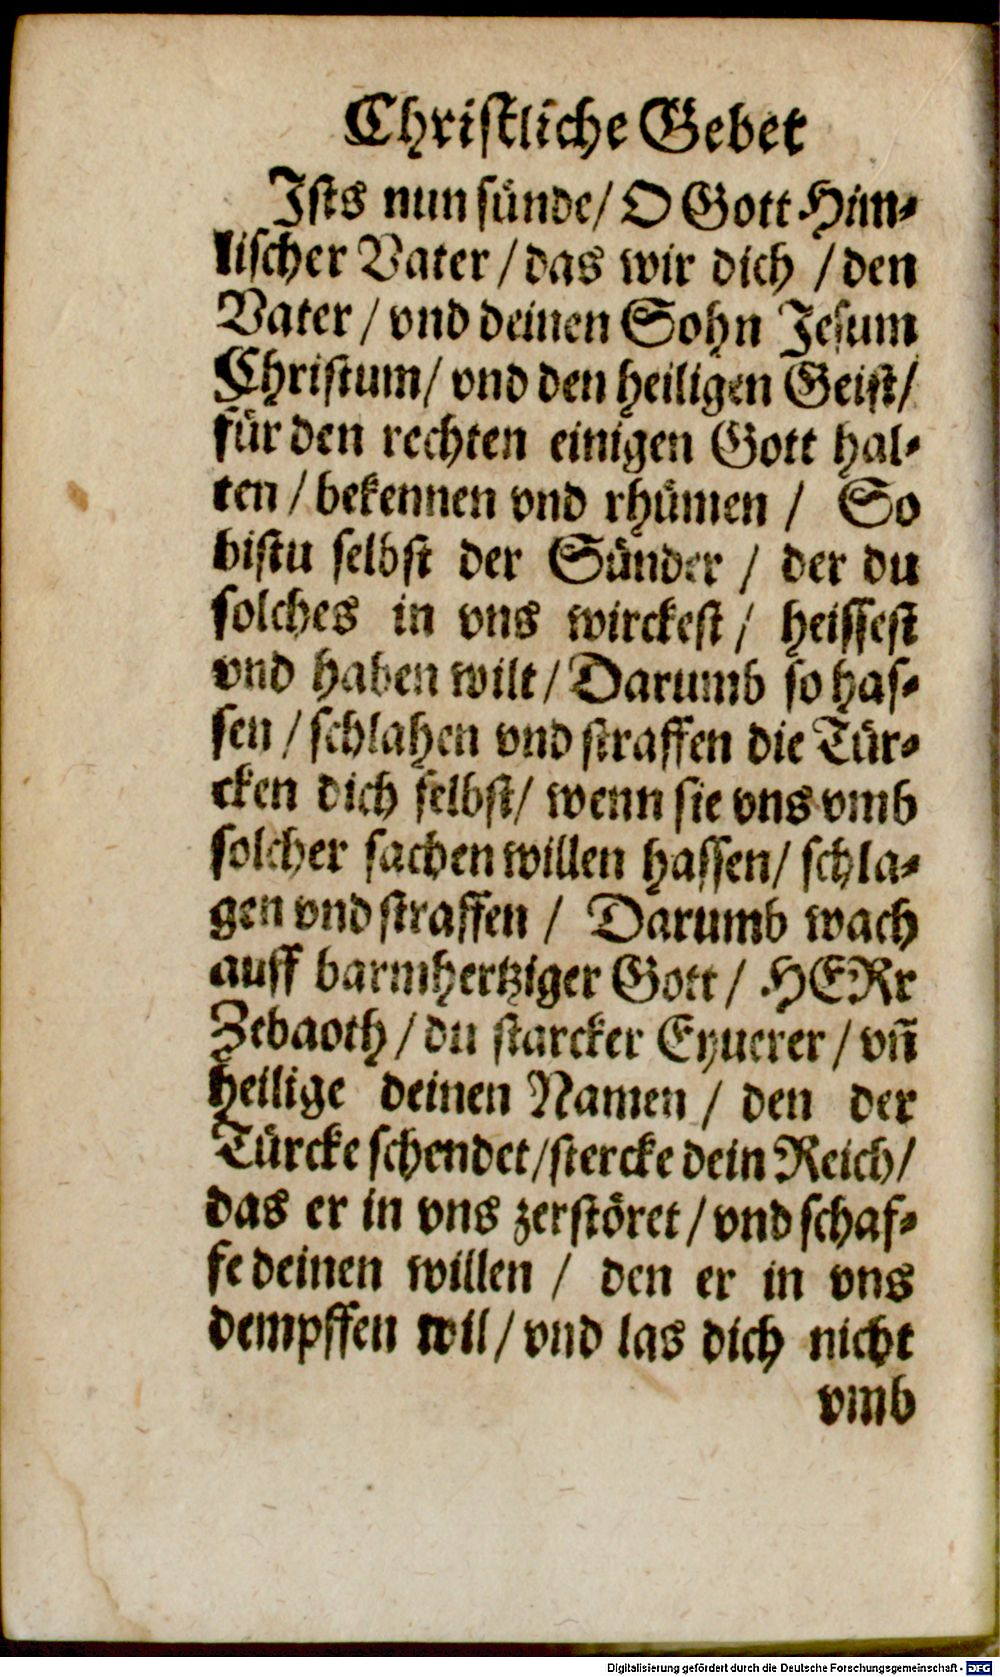 Christliche Gebet
Ists nun sünde/ O Gott Him-
lischer Vater / das wir dich / den
Vater / vnd deinen Sohn Jesum
Christum/ vnd den heiligen Geist/
für den rechten einigen Gott hal-
ten / bekennen vnd rhümen / So
bistu selbst der Sünder / der du
solches in vns wirckest / heissest
vnd haben wilt / Darumb so has-
sen / schlahen vnd straffen die Tür-
cken dich selbst/ wenn sie vns vmb
solcher sachen willen hassen/ schla-
gen vnd straffen / Darumb wach
auff barmhertziger Gott / HERr
Zebaoth / du starcker Eyuerer / vñ
heilige deinen Namen / den der
Türcke schendet/stercke dein Reich/
das er in vns zerstöret / vnd schaf-
fe deinen willen / den er in vns
dempffen wil / vnd las dich nicht
vmb
Digitalisierung gefördert durch die Deutsche Forschungsgemeinschaft - DFG